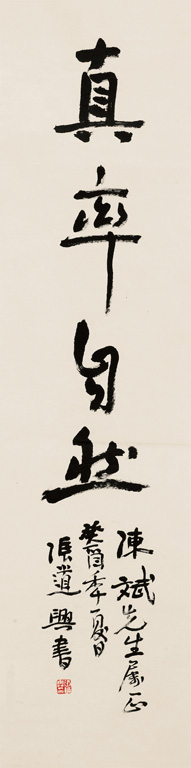 真率自然
陳斌先生属正
癸酉年夏日
張道興書